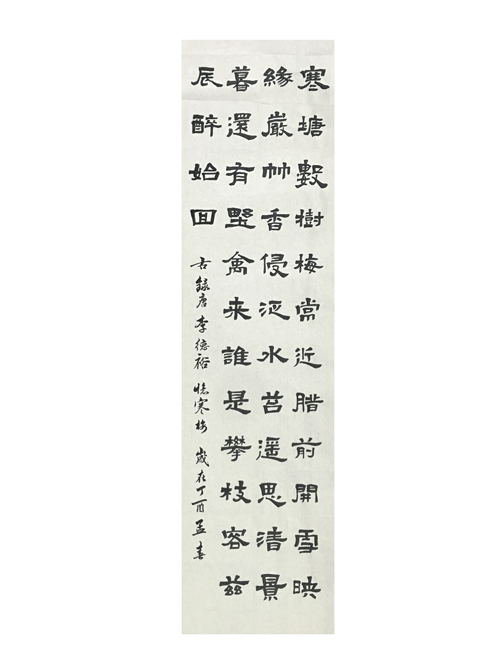 寒塘數樹梅常近腊前開雪映
緣巖竹香侵泛水苔遥思清景
暮還有野禽来誰是攀枝客兹
辰醉始回
右録唐李德裕憶寒梅 歲在丁酉孟春